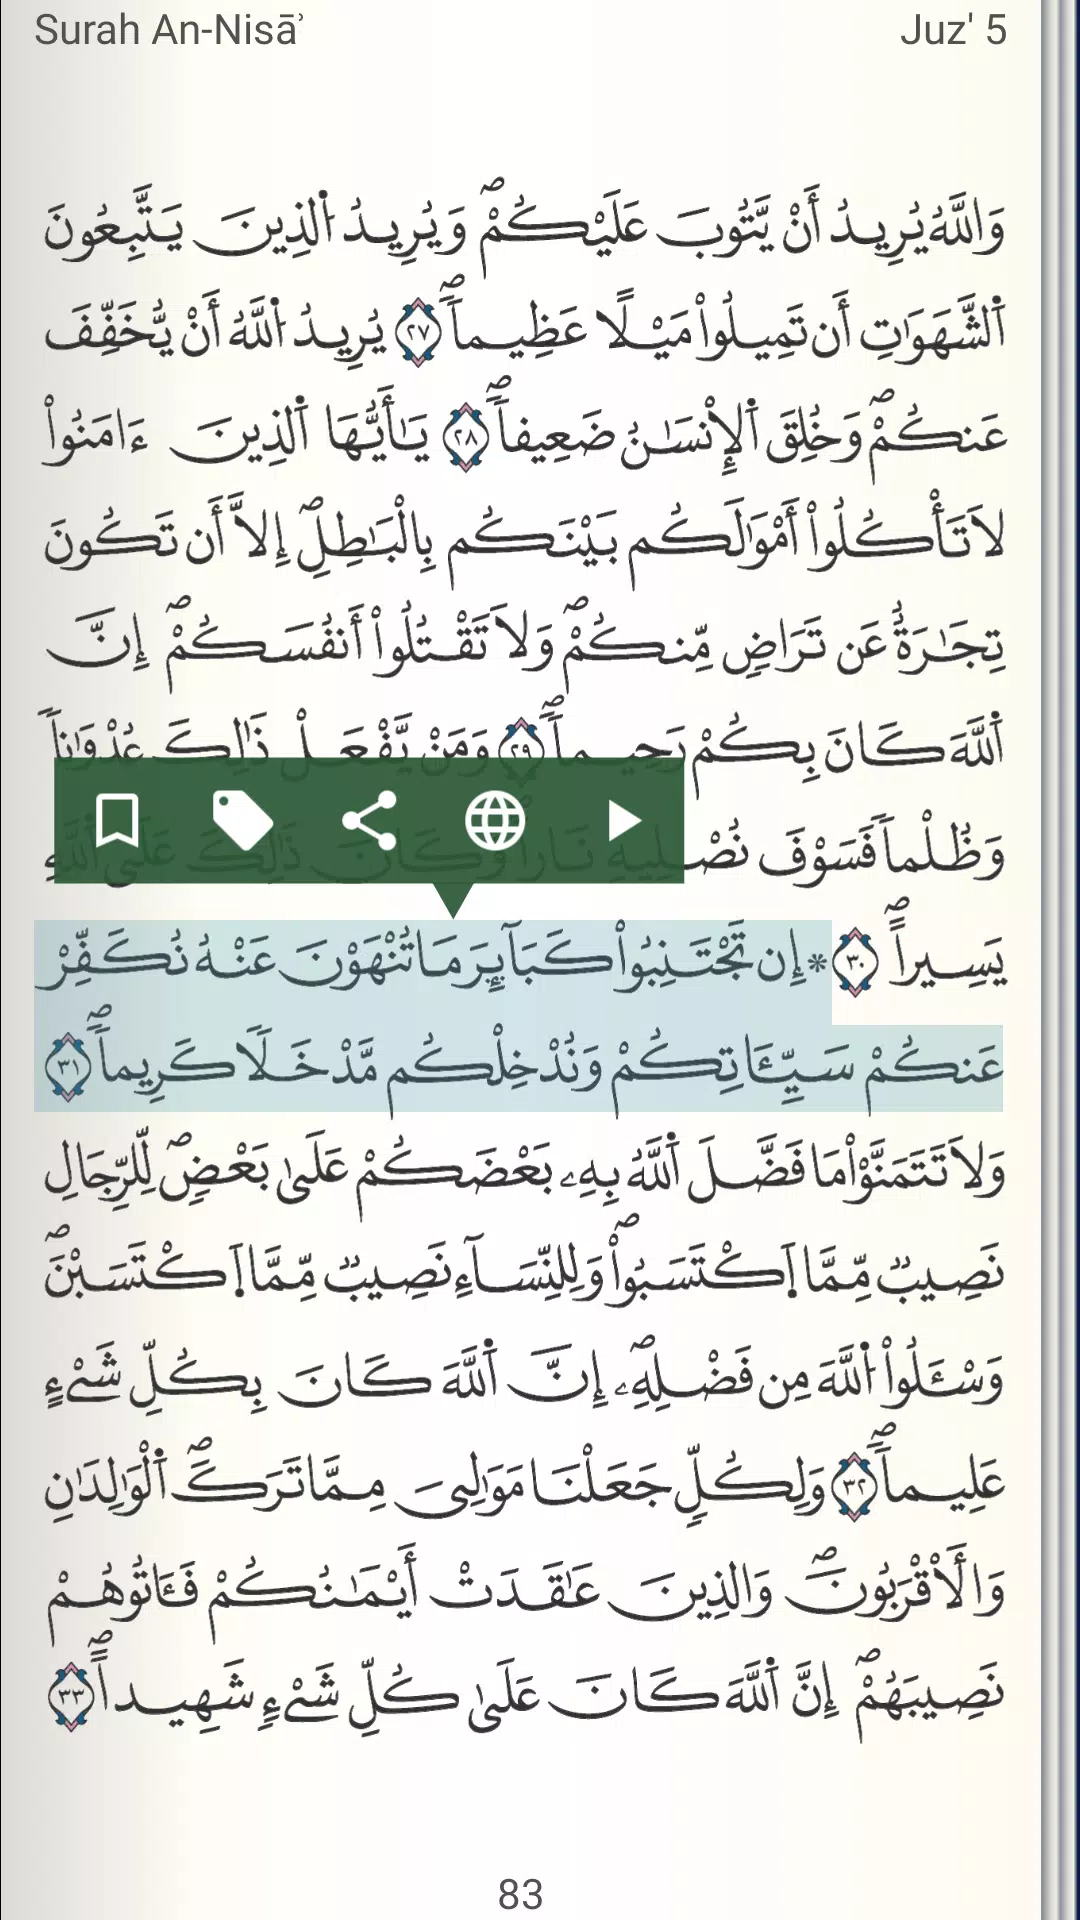 Surah An-Nisāʾ
Juz' 5
وَاللَّهُ يُرِيدُ أَنْ يَّتُوبَ عَلَيْكُمْۖ وَيُرِيدُ اُ۬لذِينَ يَتَّبِعُونَ
اَ۬لشَّهَوَٰتِ أَن تَمِيلُواْ مَيْلًا عَظِيماًۖ ٢٧ يُرِيدُ اُ۬للَّهُ أَنْ يُّخَفِّفَ
عَنكُمْۖ وَخُلِقَ اَ۬لِانْسَٰنُ ضَعِيفاًۖ ٢٨ يَٰأَيُّهَا اَ۬لذِينَ ءَامَنُواْ
لَا تَأْكُلُواْ أَمْوَٰلَكُم بَيْنَكُم بِالْبَٰطِلِۖ إِلَّا أَن تَكُونَ
تِجَٰرَةٌ عَن تَرَاضٖ مِّنكُمْۖ وَلَا تَقْتُلُواْ أَنفُسَكُمْۖ إِنَّ
اَ۬للَّهَ كَانَ بِكُمْ رَحِيماًۖ ٢٩ وَمَنْ يَّفْعَلْ ذَٰلِكَ عُدْوَٰناً
وَظُلْماً فَسَوْفَ نُصْلِيهِ نَاراً وَكَانَ ذَٰلِكَ عَلَى اَ۬للَّهِ
يَسِيراًۖ ٣٠ * إِن تَجْتَنِبُواْ كَبَآئِرَ مَا تُنْهَوْنَ عَنْهُ نُكَفِّرْ
عَنكُمْ سَيِّـَٔاتِكُمْ وَنُدْخِلْكُم مَّدْخَلًا كَرِيماًۖ ٣١
وَلَا تَتَمَنَّوْاْ مَا فَضَّلَ اَ۬للَّهُ بِهِۦ بَعْضَكُمْ عَلَىٰ بَعْضٖۖ لِّلرِّجَالِ
نَصِيبٞ مِّمَّا اَ۪كْتَسَبُواْۖ وَلِلنِّسَآءِ نَصِيبٞ مِّمَّا اَ۪كْتَسَبْنَۖ
وَسْـَٔلُواْ اُ۬للَّهَ مِن فَضْلِهِۦۖ إِنَّ اَ۬للَّهَ كَانَ بِكُلِّ شَيْءٍ
عَلِيماًۖ ٣٢ وَلِكُلّٖ جَعَلْنَا مَوَٰلِيَ مِمَّا تَرَكَۖ اَ۬لْوَٰلِدَٰنِ
وَالَاقْرَبُونَۖ وَالذِينَ عَٰقَدَتْ أَيْمَٰنُكُمْ فَـَٔاتُوهُمْ
نَصِيبَهُمْۖ إِنَّ اَ۬للَّهَ كَانَ عَلَىٰ كُلِّ شَيْءٖ شَهِيداًۖ ٣٣
83